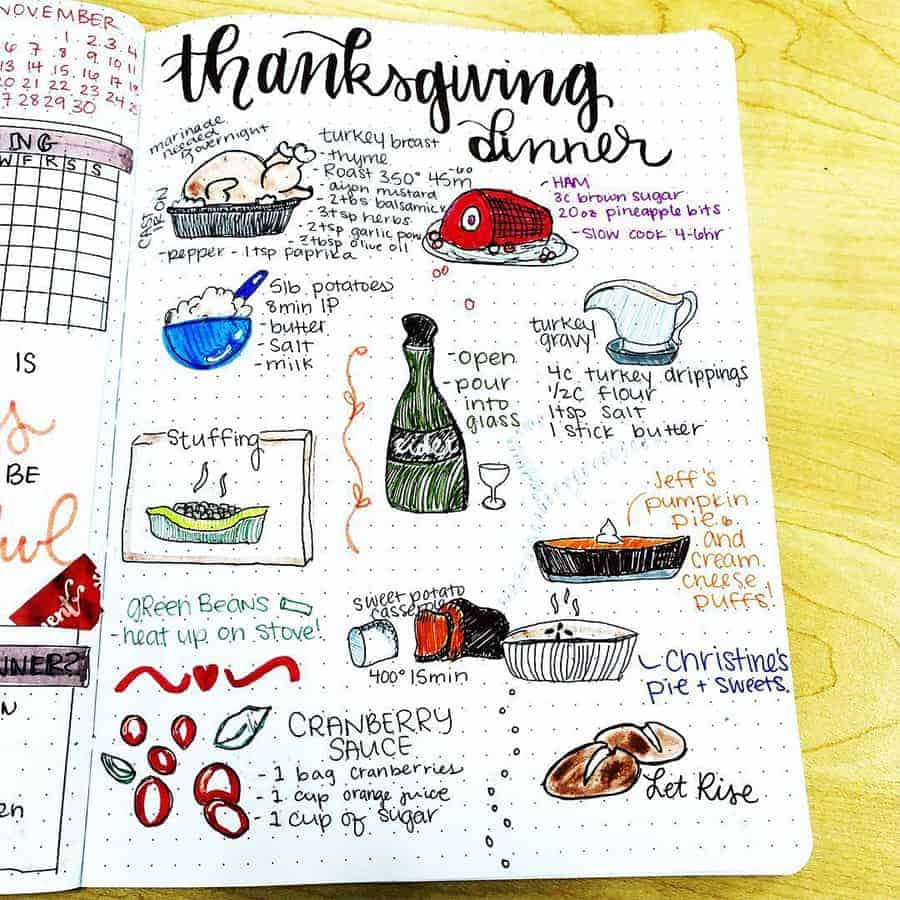 NOVEMBER
1 2 3 4
6 7 8 9 10 11
13 14 15 16 17 18
20 21 22 23 24 25
27 28 29 30
ING
W F R S S
IS
BE
INNER?
N
en
thanksgiving
dinner
marinade
needed
overnight
CAST
IRON
turkey breast
- thyme
- Roast 350° 45m-60
- dijon mustard
- 2tbs balsamic
- 3tsp herbs
- 2tsp garlic pow
- 2tbsp olive oil
- pepper - 1tsp paprika
- HAM
3c brown sugar
20oz pineapple bits
- Slow cook 4-6hr
5lb potatoes
8min IP
- butter
- salt
- milk
- open
- pour
into
glass
turkey
gravy
4c turkey drippings
1/2c flour
1tsp salt
1 stick butter
Stuffing
Jeff's
pumpkin
pie
and
cream
cheese
puffs!
green beans
- heat up on stove!
sweet potato
casserole
400° 15min
Christine's
pie + sweets.
CRANBERRY
SAUCE
- 1 bag cranberries
- 1 cup orange juice
- 1 cup of sugar
Let Rise